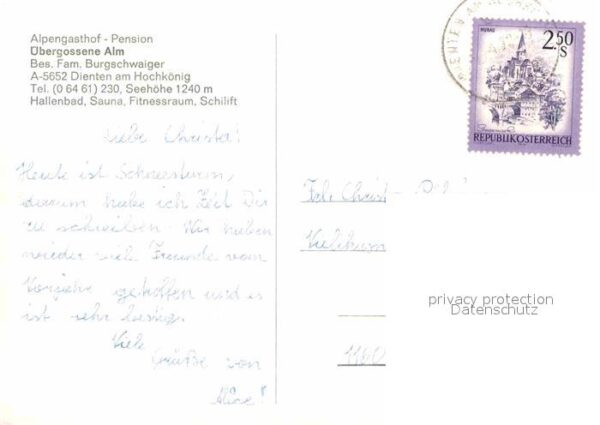 Alpengasthof - Pension
Übergossene Alm
Bes. Fam. Burgschwaiger
A-5652 Dienten am Hochkönig
Tel. (0 64 61) 230, Seehöhe 1240 m
Hallenbad, Sauna, Fitnessraum, Schilift
MURAU
2.50
S
REPUBLIK ÖSTERREICH
DIENTEN AM
Liebe Christa!
Heute ist Schneesturm,
darum habe ich Zeit Dir
zu schreiben. Wir haben
wieder viele Freunde vom
Vorjahr getroffen und es
ist sehr lustig.
Viele
Grüße von
Frl. Christ
privacy protection
Datenschutz
1160